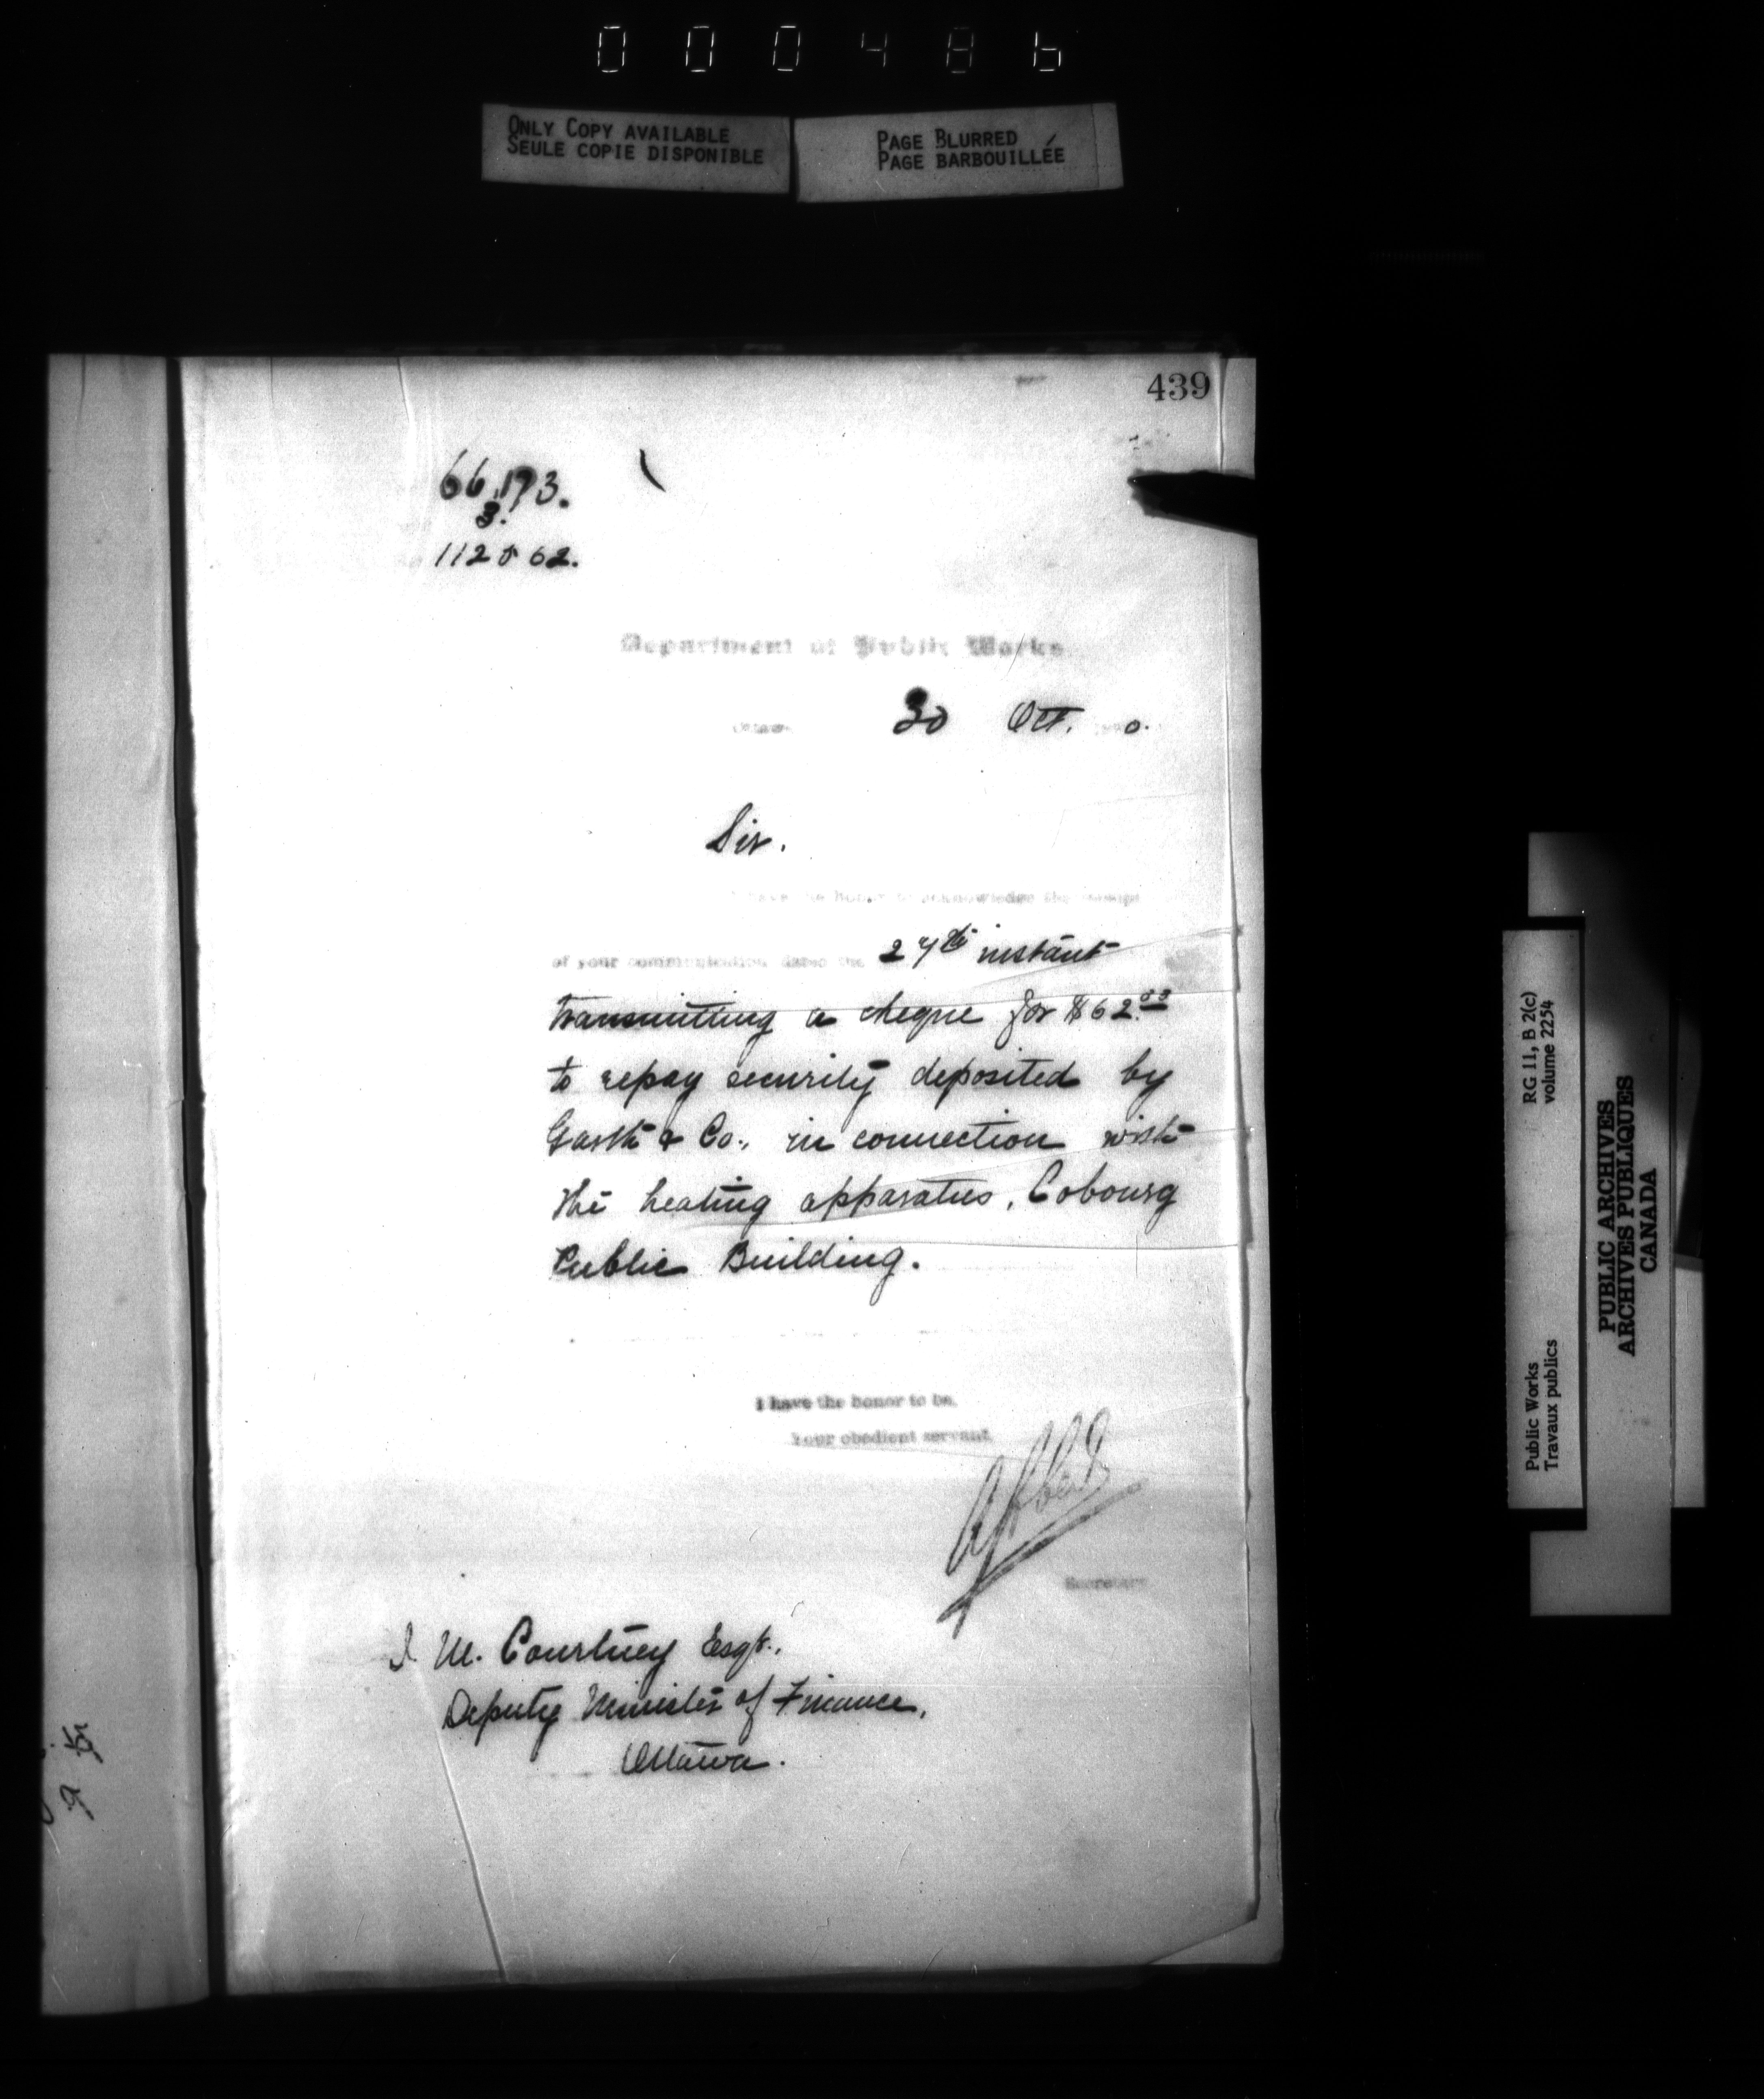 000486
ONLY COPY AVAILABLE
SEULE COPIE DISPONIBLE
PAGE BLURRED
PAGE BARBOUILLÉE
439
66,193.
3.
112562.
Department of Public Works
Ottawa 30 Oct. 0.
Sir.
I have the honor to acknowledge the receipt
of your communication dated the 27th instant
transmitting a cheque for $62.00
to repay security deposited by
Garth & Co., in connection with
the heating apparatus, Cobourg
Public Building.
I have the honor to be,
Your obedient servant,
Secretary
J. M. Courtney Esqr.,
Deputy Minister of Finance,
Ottawa.
RG 11, B 2(c)
volume 2254
Public Works
Travaux publics
PUBLIC ARCHIVES
ARCHIVES PUBLIQUES
CANADA